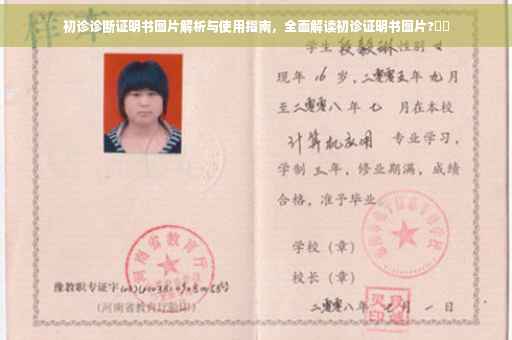 初诊诊断证明书图片解析与使用指南，全面解读初诊证明书图片?
样本
学生 段毅琳 性别 女
现年 16 岁，二零零五年 九月
至二零零八年 七 月在本校
计算机应用 专业学习，
学制 三 年，修业期满，成绩
合格，准予毕业
学校（章）
校长（章）
二零零八年 七 月 一 日
河南省教育厅
豫教职专证字
(河南省教育厅验印)